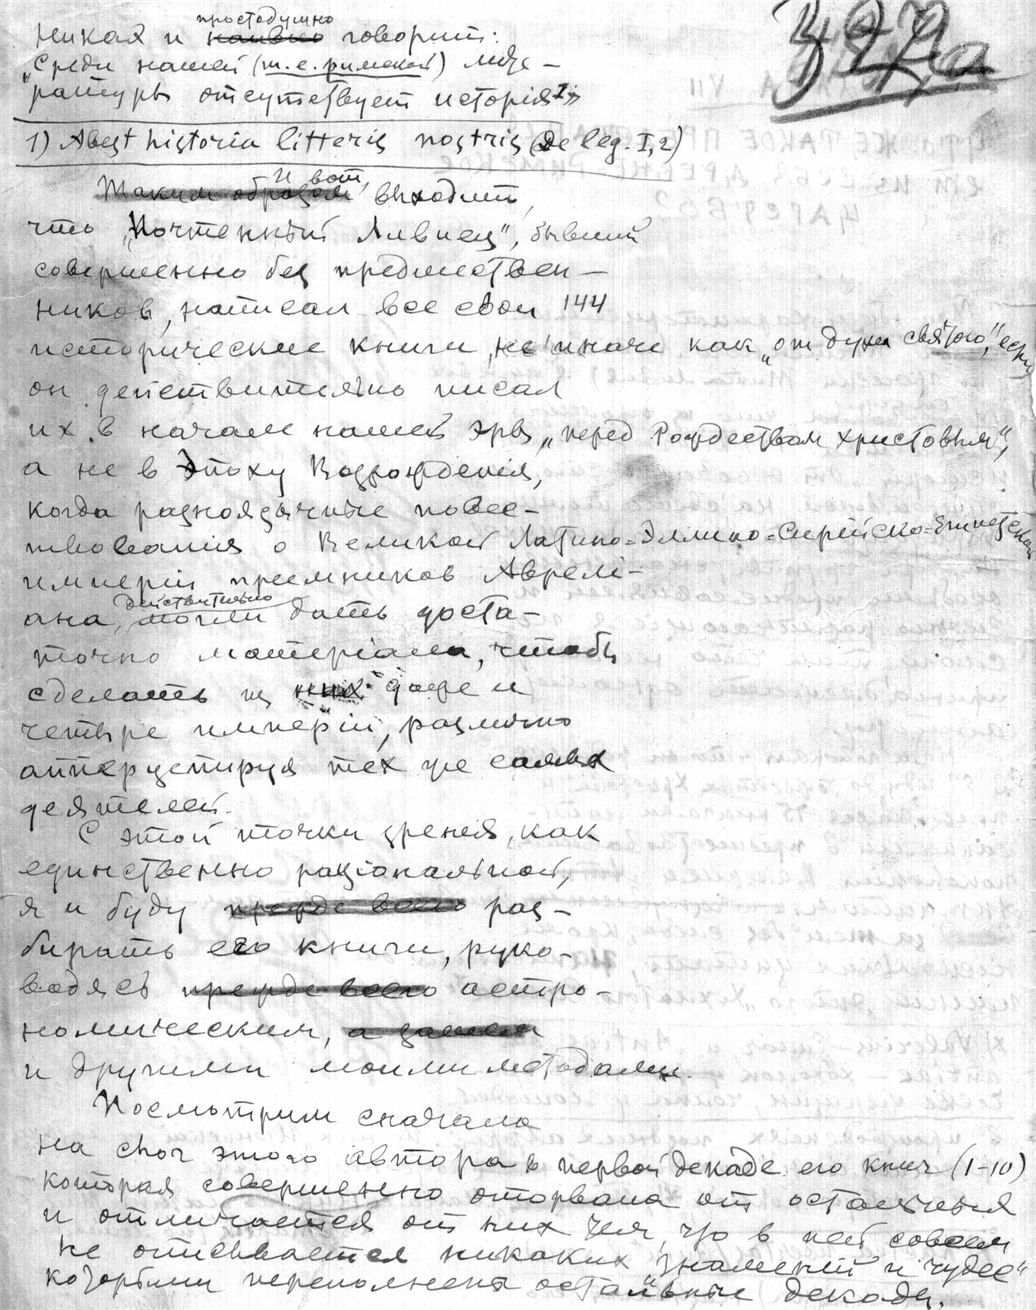 322а
простодушно
никая и наивно говорит:
„Среди нашей (т. е. римской) лите-
ратуры отсутствует исторія 1»
1) Abest historia litteris nostris (De leg. I, 2)
И вот
Таким образом выходит,
что „Почтенный Ливиец", бывший
совершенно без предшествен-
ников, написал все свои 144
исторические книги не иначе как „от духа святого", если
он действительно писал
их в начале нашей эры, „перед Рождеством Христовым",
а не в Эпоху Возрожденія,
когда разноязычные повес-
твованія о Великой Латино-Эллино-Сирійско-Египетской
имперіи преемников Авреліа-
ана, могли дать доста-
действительно
точно материала, чтобы
сделать из них даже и
четыре имперіи, различно
апперцепируя тех же самых
деятелей.
С этой точки зрения, как
единственно раціональной,
я и буду прежде всего раз-
бирать его книги, руко-
водясь прежде всего астро-
номическим, а затем
и другими моими методами.
Посмотрим сначала
на слог этого автора в первой декаде его книг (1-10)
которая совершенно оторвана от остальных
и отличается от них тем, что в ней совсем
не описывается никаких „знамений и чудес"
которыми переполнены остальные декады.